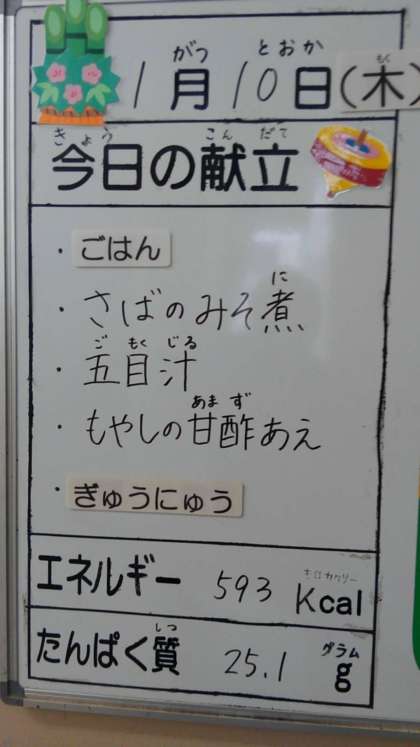 がつ とおか もく
1月10日(木)
きょう こんだて
今日の献立
・ごはん
に
・さばのみそ煮
ごもくじる
・五目汁
あまず
・もやしの甘酢あえ
・ぎゅうにゅう
キロカロリー
エネルギー 593 Kcal
しつ グラム
たんぱく質 25.1 g